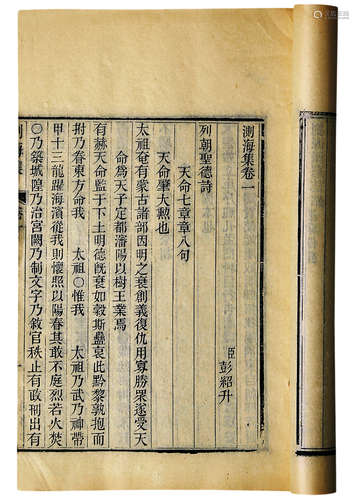 測海集卷一
臣彭紹升
列朝聖德詩
天命七章章八句
天命肇大勲也
太祖奄有蒙古諸部因明之衰創義復仇用寡勝眾遂受天
命為天子定都瀋陽以樹王業焉
有赫天命監于下土明德既衰如穀斯蠱哀此黔黎孰抱而
拊乃眷東方命我　太祖○惟我　太祖乃武乃神帶
甲十三龍躍海濱從我則懷照以陽春其敢不庭烈若火焚
○乃築城隍乃治宮闕乃制文字乃敘官秩止有政刑出有